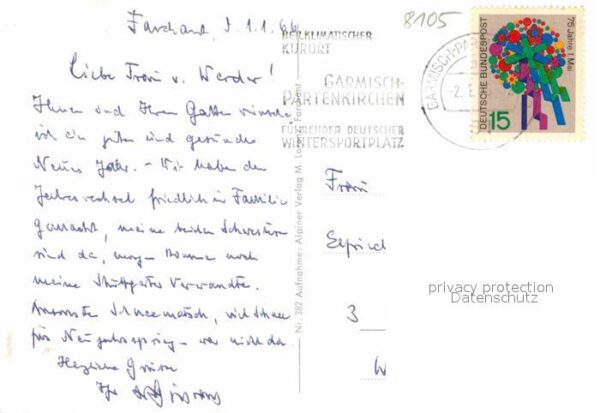 Farchant, d. 1.1.66
Liebe Frau v. Werder!
Ihnen und Ihrem Gatten wünsche
ich ein gutes und gesundes
Neues Jahr. - Wir haben den
Jahreswechsel friedlich in Familie
gemacht, meine beiden Schwestern
sind da, morgen kommen noch
meine Stuttgarter Verwandte.
Schneematsch,
für Neujahrsspringen war nicht da.
Herzliche Grüsse
Ihr
8105
HEILKLIMATISCHER
KURORT
GARMISCH-
PARTENKIRCHEN
FÜHRENDER DEUTSCHER
WINTERSPORTPLATZ
GARMISCH-PA
-2.
DEUTSCHE BUNDESPOST
75 Jahre 1. Mai
15
Nr. 382 Aufnahme: Alpiner Verlag M.
Frau
3
W
privacy protection
Datenschutz